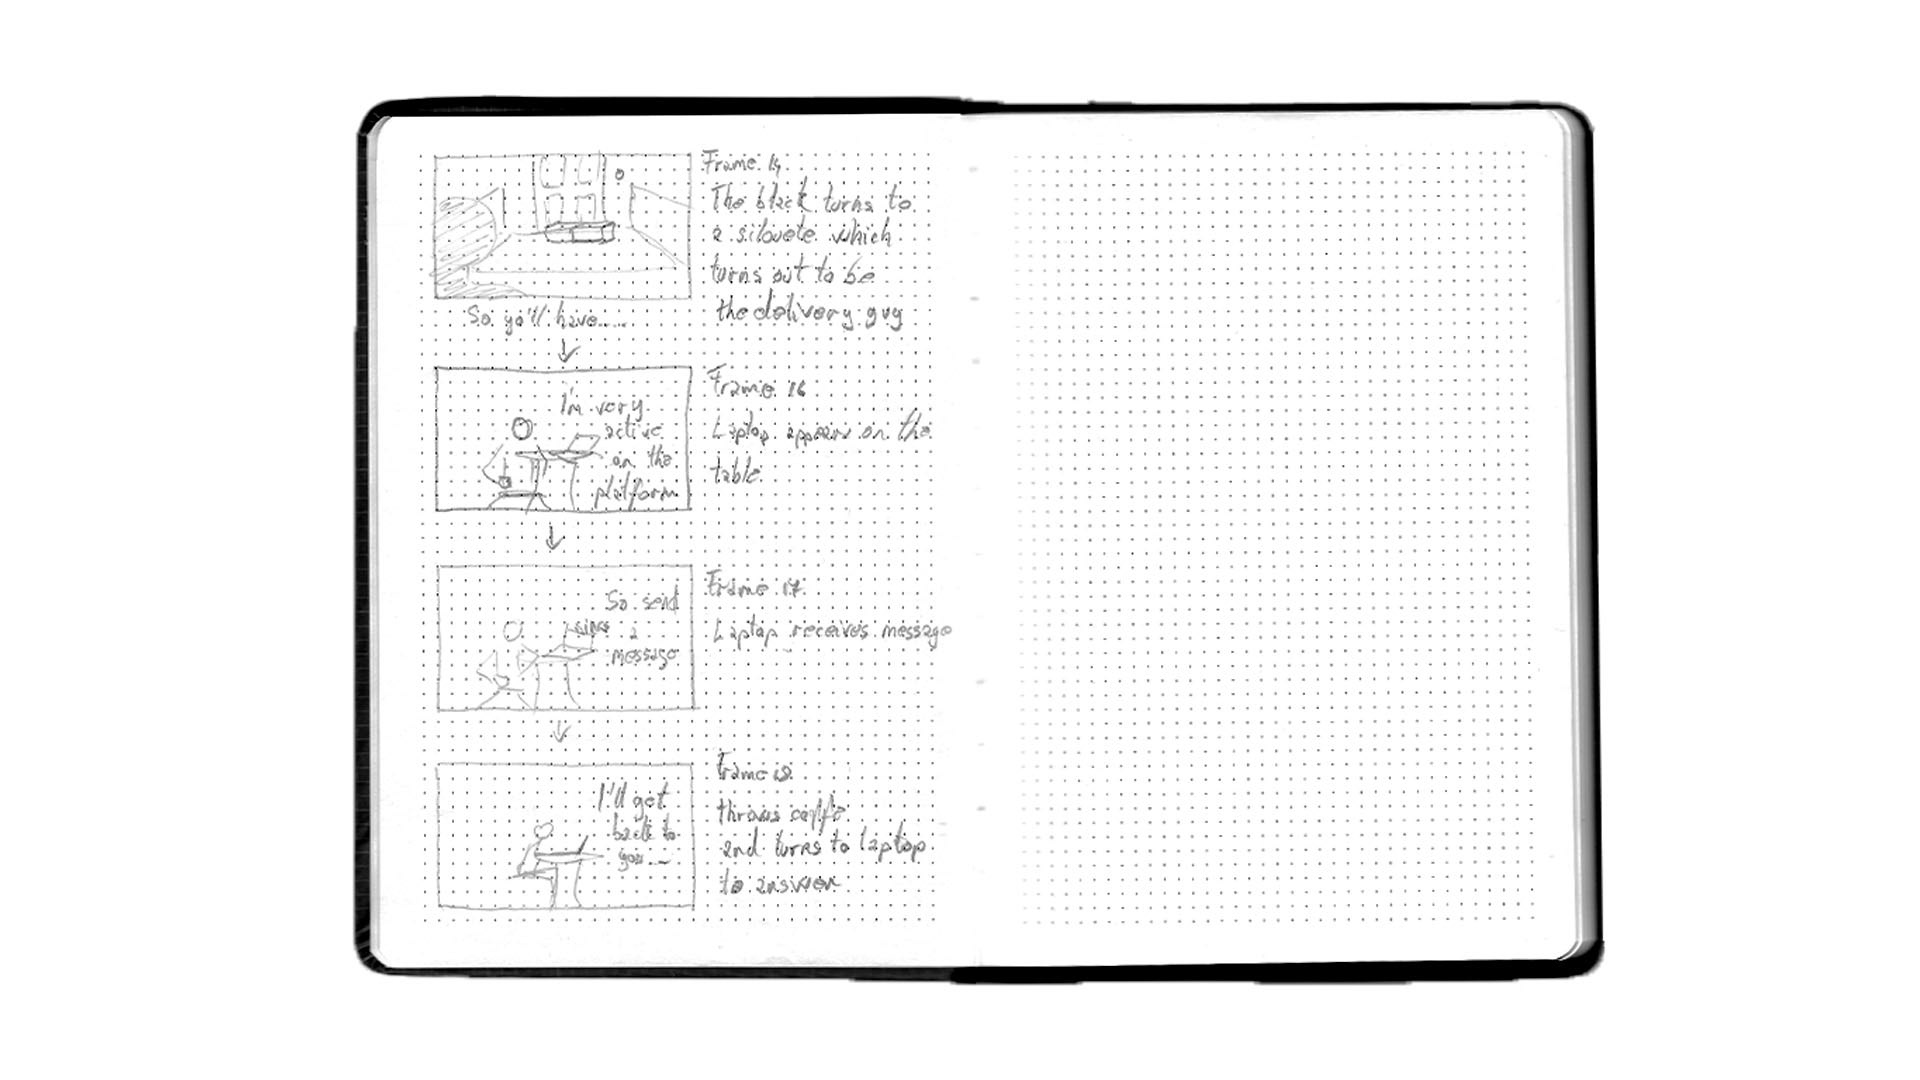 Frame 14
The black turns to
a silouete which
turns out to be
the delivery guy
So yo'll have.....
Frame 16
Laptop appears on the
table
I'm very
active
on the
platform
Frame 17
Laptop receives message
So send
a
message
Frame
throws caffe
and turns to laptop
to answer
I'll get
back to
you...